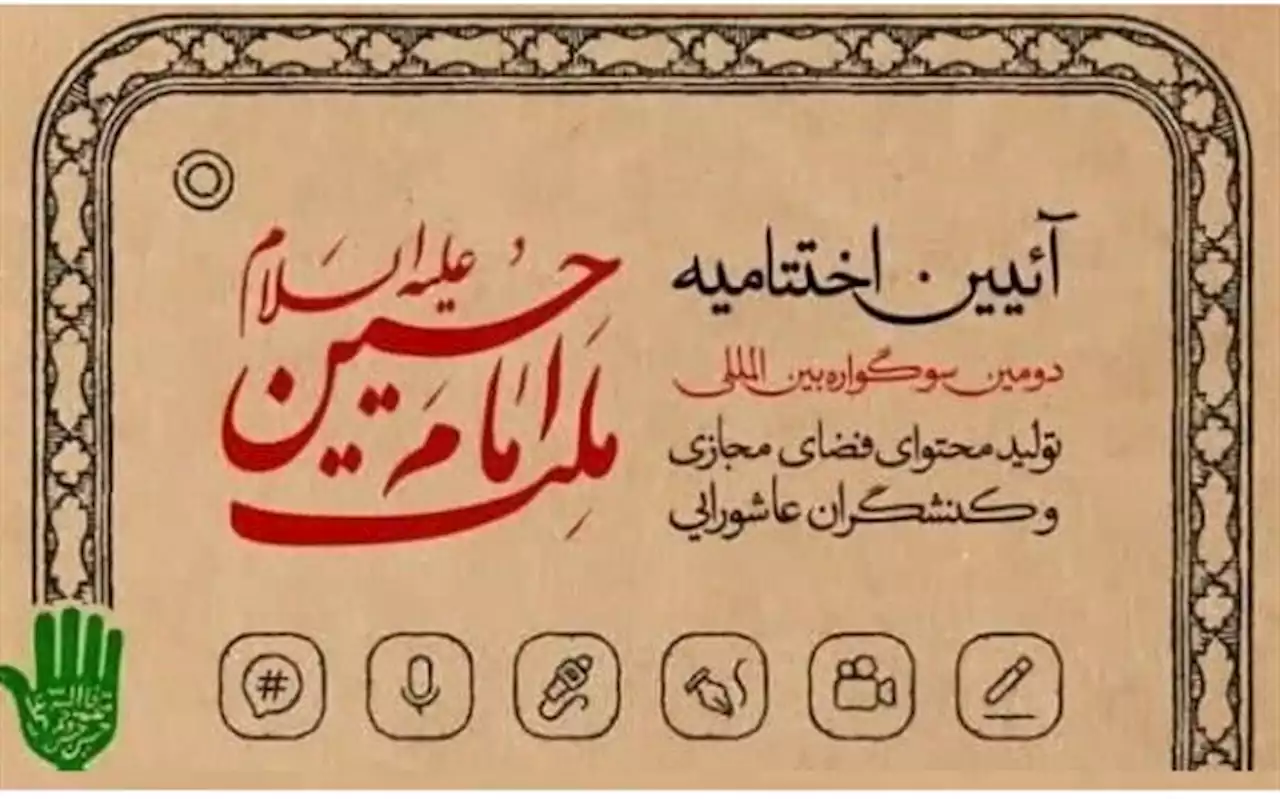 آئیین اختتامیه
دومین سوگواره بین المللی
تولید محتوای فضای مجازی
و کنشگران عاشورایی
ملت امام حسین علیه السلام
#